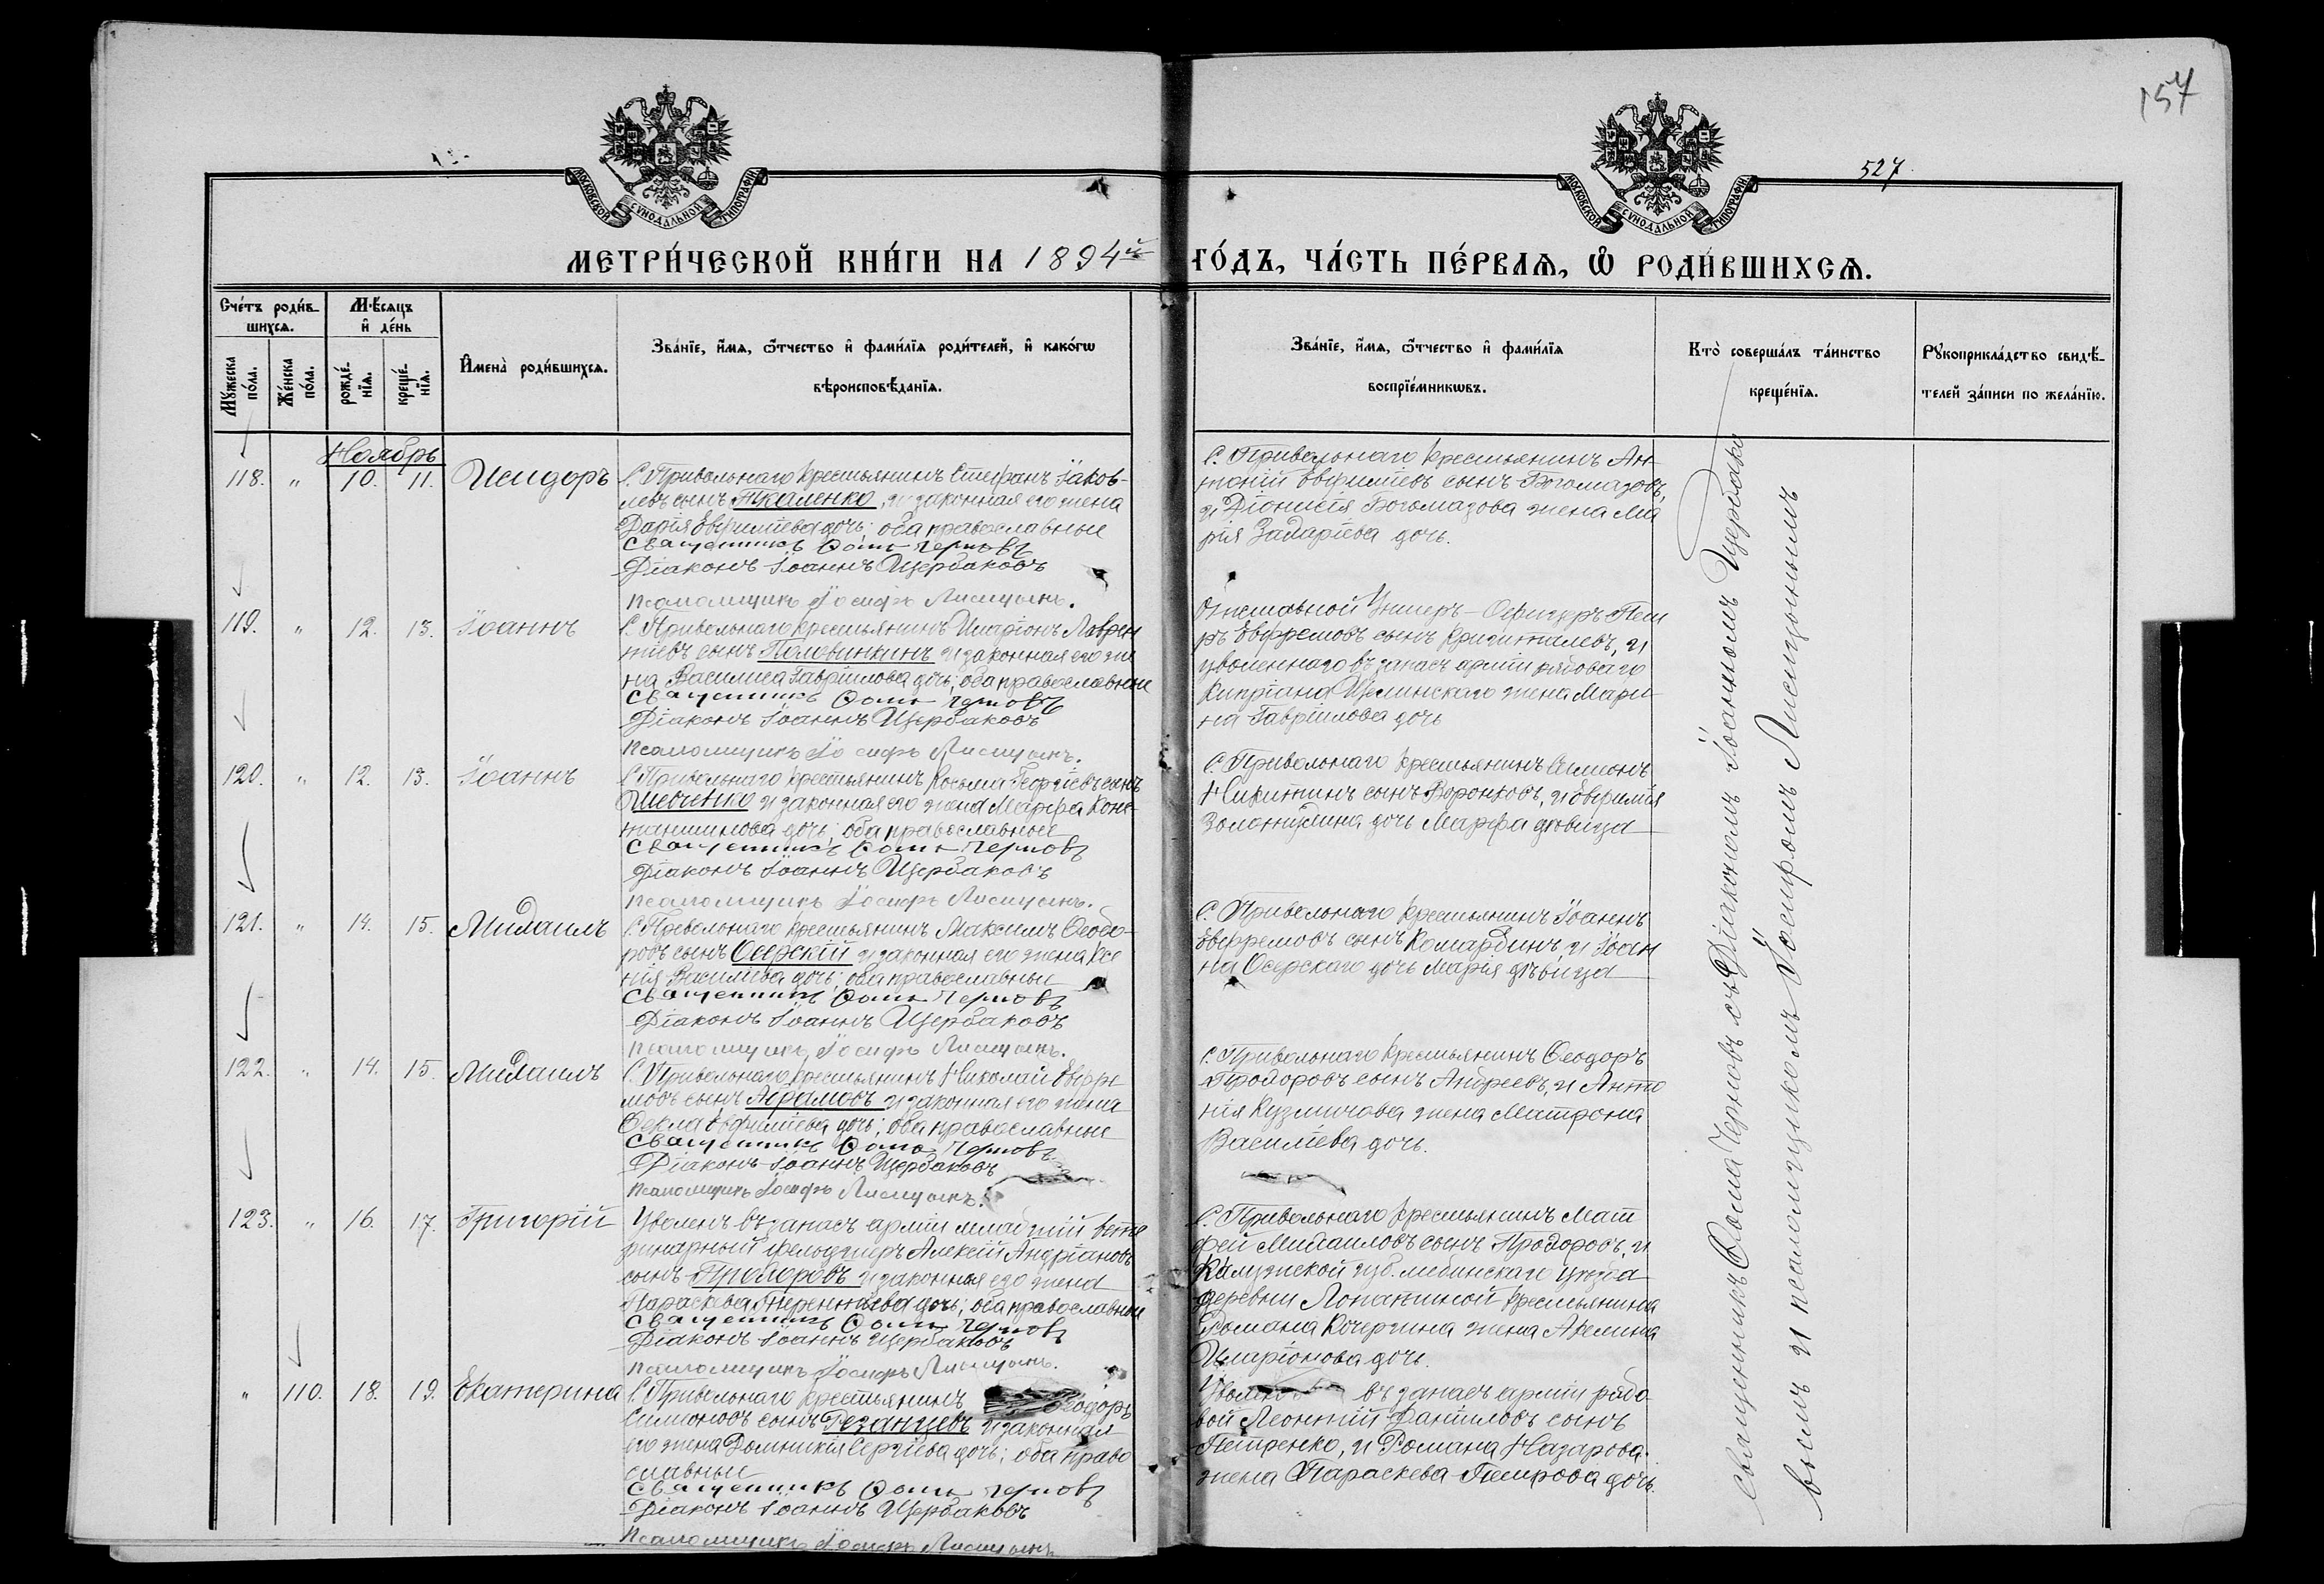 157
527
МОСКОВСКОЙ СѴНОДАЛЬНОЙ ТИПОГРАФІИ
МОСКОВСКОЙ СѴНОДАЛЬНОЙ ТИПОГРАФІИ
МЕТРИ́ЧЕСКОЙ КНИ́ГИ НА 1894й ГО́ДЪ, ЧА́СТЬ ПЕ́РВАѦ, Ѽ РОДИ́ВШИХСѦ.
Сче́тъ роди́в-
шихсѧ.
Мꙋ́жеска по́ла.
Же́нска по́ла.
Мѣ́сѧцъ
и҆ де́нь
рожде́-
нїѧ.
креще́-
нїѧ.
И҆мена̀ роди́вшихсѧ.
Зва́нїе, и҆́мѧ, ѻ҆́тчество и҆ фами́лїѧ роди́телей, и҆ како́гѡ
вѣроисповѣ́данїѧ.
Зва́нїе, и҆́мѧ, ѻ҆́тчество и҆ фами́лїѧ
воспрїе́мникѡвъ.
Кто̀ соверша́лъ та́инство
креще́нїѧ.
Рꙋкоприкла́дство свидѣ́-
телей за́писи по жела́нїю.
Ноябрь
118. " 10. 11. Исидоръ
С. Привольнаго крестьянинъ Стефанъ Іаков-
левъ сынъ и законная его жена
Дарія Евѳиміева дочь; оба православные
Священникъ Ѳома Черновъ
Діаконъ Іоаннъ Щербаковъ
Псаломщикъ Іосифъ Лисицынъ.
С. Привольнаго крестьянинъ Ан-
тоній Евѳиміевъ сынъ Богомазовъ,
и Діонисія Богомазова жена Ма
рія Захаріева дочь.
119. " 12. 13. Іоаннъ
С. Привольнаго крестьянинъ Иларіонъ Лаврен
тіевъ сынъ Половинкинъ и законная его же
на Василиса Гавріилова дочь; оба православные
Священникъ Ѳома Черновъ
Діаконъ Іоаннъ Щербаковъ
Псаломщикъ Іосифъ Лисицынъ.
Отставной Унтеръ-Офицеръ Пет
ръ Евфремовъ сынъ и
уволеннаго въ запасъ арміи рядоваго
Кипріана жена Мари-
на Гавріилова дочь
120. " 12. 13. Іоаннъ
С. Привольнаго крестьянинъ Косьма Георгіевъ сынъ
Шевченко и законная его жена Марфа Конс-
тантинова дочь; оба православные
Священникъ Ѳома Черновъ
Діаконъ Іоаннъ Щербаковъ
Псаломщикъ Іосифъ Лисицынъ.
С. Привольнаго крестьянинъ Симеонъ
Никитинъ сынъ Воронковъ, и Евѳимія
дочь Марфа дѣвица
121. " 14. 15. Михаилъ
С. Привольнаго крестьянинъ Максимъ Ѳеодо-
ровъ сынъ Осерскій и законная его жена Ксе
нія Василіева дочь; оба православные
Священникъ Ѳома Черновъ
Діаконъ Іоаннъ Щербаковъ
Псаломщикъ Іосифъ Лисицынъ.
С. Привольнаго крестьянинъ Іоаннъ
Евфремовъ сынъ Комардинъ, и Іоан
на Осерскаго дочь Марія дѣвица
122. " 14. 15. Михаилъ
С. Привольнаго крестьянинъ Николай Евфре
мовъ сынъ Абрамовъ и законная его жена
Ѳекла Евѳиміева дочь; оба православные
Священникъ Ѳома Черновъ
Діаконъ Іоаннъ Щербаковъ
Псаломщикъ Іосифъ Лисицынъ.
С. Привольнаго крестьянинъ Ѳеодоръ
Прохоровъ сынъ Андреевъ, и Анто
нія Кузмичова жена Матрона
Василіева дочь.
123. " 16. 17. Григорій
Уволенъ въ запасъ арміи младшій вете
ринарный фельдшеръ Алексій Андріановъ
сынъ Прохоровъ и законная его жена
Параскева Терентіева дочь; оба православные
Священникъ Ѳома Черновъ
Діаконъ Іоаннъ Щербаковъ
Псаломщикъ Іосифъ Лисицынъ.
С. Привольнаго крестьянинъ Мат
фей Михаиловъ сынъ Прохоровъ, и
Калужской губ. уѣзда
деревни Лопатиной крестьянина
Романа Кочергина жена Акелина
Иларіонова дочь.
" 110. 18. 19. Екатерина
С. Привольнаго крестьянинъ Ѳеодоръ
Симеоновъ сынъ Резанцевъ и законная
его жена Домникія Сергіева дочь; оба право
славные
Священникъ Ѳома Черновъ
Діаконъ Іоаннъ Щербаковъ
Псаломщикъ Іосифъ Лисицынъ
въ запасъ арміи рядо
вой Леонтій Даніиловъ сынъ
Петренко, и Романа Назарова
жена Параскева Петрова дочь
Священникъ Ѳома Черновъ съ Діакономъ Іоанномъ Щербако
вымъ и псаломщикомъ Іосифомъ Лисицынымъ